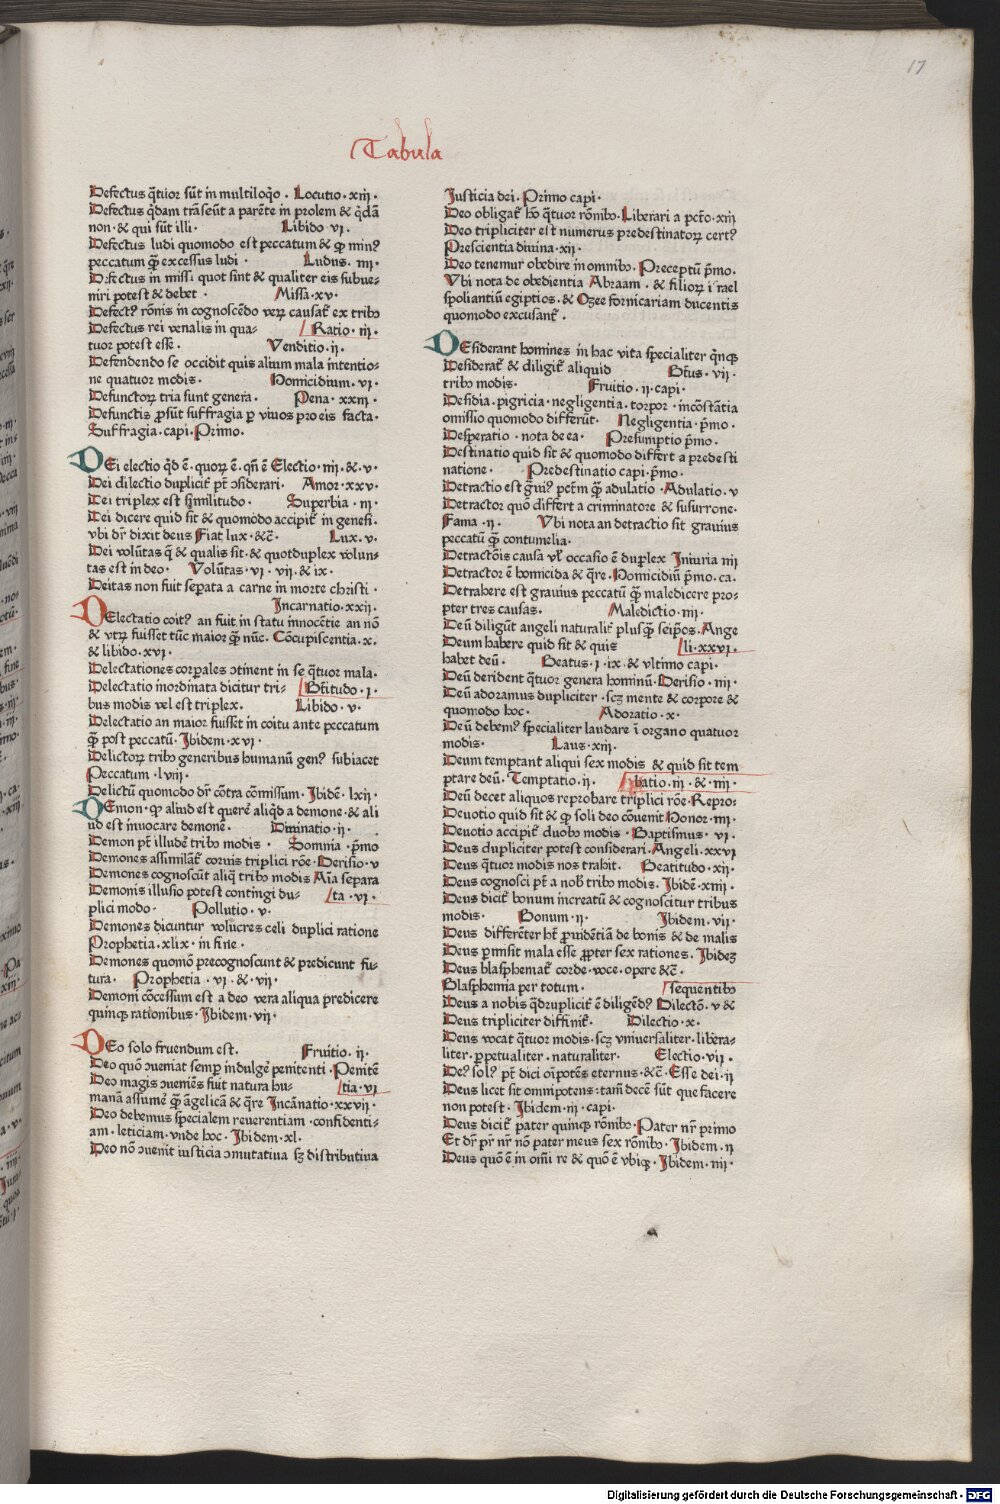 17
Tabula
Defectus q̄tuor sūt in multiloq̄o . Locutio . xiij .
Defectus q̄dam trāseūt a parēte in prolem & q̄dā
non . & qui sūt illi . Libido vj .
Defectus ludi quomodo est peccatum & ꝙ minꝰ
peccatum q̄ꝫ excessus ludi . Ludus . iiij .
Defectus in missa quot sint & qualiter eis subue-
niri potest & debet . Missa . xv .
Defectꝰ rōnis in cognoscēdo veꝝ causat᷑ ex tribꝰ
Defectus rei venalis in qua- Ratio . iij .
tuor potest esse . Venditio . ij .
Defendendo se occidit quis alium mala intentio-
ne quatuor modis . Homicidium . vj .
Defunctoꝝ tria sunt genera . Pena . xxiij .
Defunctis ꝓsūt suffragia ꝑ viuos pro eis facta .
Suffragia . capi . Primo .
DEi electio qd ē . quoꝝ ē . qn̄ ē Electio . iiij . & . v .
Dei dilectio duplicit᷑ pt̄ ↄsiderari . Amor . xxv .
Dei triplex est similitudo . Superbia . iij .
Dei dicere quid sit & quomodo accipit᷑ in genesi .
vbi dr̄ dixit deus Fiat lux . &c̄ . Lux . v .
Dei volūtas q̄ & qualis sit . & quotduplex volun-
tas est in deo . Volūtas . vj . vij . & ix .
Deitas non fuit sepata a carne in morte christi .
Incarnatio . xxij .
DElectatio coitꝰ an fuit in statu innocētie an nō
& vtꝝ fuisset tūc maior q̄ꝫ nūc . Cōcupiscentia . x .
& libido . xvj .
Delectationes corꝑales ↄtinent in se q̄tuor mala .
Delectatio inordinata dicitur tri- Btītudo . j .
bus modis vel est triplex . Libido . v .
Delectatio an maior fuisset in coitu ante peccatum
q̄ꝫ post peccatū . Ibidem . xvj .
Delictoꝝ tribꝰ generibus humanū genꝰ subiacet
Peccatum . lvij .
Delictū quomodo dr̄ cōtra cōmissum . Ibidē . lxij .
DEmon . ꝙ aliud est querē aliqd a demone . & ali
ud est inuocare demonē . Diuinatio . ij .
Demon pt̄ illudē tribꝰ modis . Somnia . pͫo
Demones assimilāt᷑ coruis triplici rōe . Derisio . v
Demones cognoscūt aliq̄ tribꝰ modis Aīa separa
Demonis illusio potest contingi du- ta . vj .
plici modo . Pollutio . v .
Demones dicuntur volucres celi duplici ratione
Prophetia . xlix . in fine .
Demones quomō precognoscunt & predicunt fu-
tura . Prophetia . vj . & . vij .
Demoni cōcessum est a deo vera aliqua predicere
quinqꝫ rationibus . Ibidem . vij .
DEo solo fruendum est . Fruitio . ij .
Deo quō ↄueniat semꝑ indulgē penitenti . Penitē
Deo magis ↄueniēs fuit natura hu- tia . vj
manā assumē q̄ꝫ āgelicā & q̄re Incānatio . xxvij .
Deo debemus specialem reuerentiam . confidenti-
am . leticiam . vnde hoc . Ibidem . xl .
Deo nō ↄuenit iusticia ↄmutatiua sꝫ distributiua
Iusticia dei . Primo capi .
Deo obligat᷑ hō q̄tuor rōnibꝰ . Liberari a pctō . xiij
Deo tripliciter est numerus predestinatoꝝ certꝰ
Prescientia diuina . xij .
Deo tenemur obedire in omnibꝰ . Preceptū pͫo .
Vbi nota de obedientia Abraam . & filioꝝ israel
spoliantiū egiptios . & Ozee fornicariam ducentis
quomodo excusant᷑ .
DEsiderant homines in hac vita specialiter q̄nqꝫ
Desiderat᷑ & diligit᷑ aliquid Btūs . vij .
tribꝰ modis . Fruitio . ij . capi .
Desidia . pigricia . negligentia . torpor . incōstātia
omissio quomodo differūt . Negligentia . pͫo .
Desperatio . nota de ea . Presumptio pͫo .
Destinatio quid sit & quomodo differt a predesti
natione . Predestinatio capi . pͫo .
Detractio est gͣuiꝰ pctm̄ q̄ꝫ adulatio . Adulatio . v
Detractor quō differt a criminatore & susurrone .
Fama . ij . Vbi nota an detractio sit grauius
peccatū q̄ꝫ contumelia .
Detractōis causa vl̄ occasio ē duplex Iniuria iiij
Detractor ē homicida & q̄re . Homicidiū pͫo . ca .
Detrahere est grauius peccatū q̄ꝫ maledicere pro-
pter tres causas . Maledictio . iiij .
Deū diligūt angeli naturalit᷑ plusq̄ꝫ seip̄os . Ange
Deum habere quid sit & quis li . xxvj .
habet deū . Beatus . j . ix . & vltimo capi .
Deū derident q̄tuor genera hominū . Derisio . iij .
Deū adoramus dupliciter . scꝫ mente & corpore &
quomodo hoc . Adoratio . x .
Deū debemꝰ specialiter laudare ī organo quatuor
modis . Laus . xiij .
Deum temptant aliqui sex modis & quid sit tem
ptare deū . Temptatio . ij . batio . iij . & . iiij .
Deū decet aliquos reprobare triplici rōe . Repro-
Deuotio quid sit & ꝙ soli deo cōuenit Honor . iiij .
Deuotio accipit᷑ duobꝰ modis . Baptismus . vj .
Deus dupliciter potest considerari . Angeli . xxvj
Deus q̄tuor modis nos trahit . Beatitudo . xij .
Deus cognosci pt̄ a nob̄ tribꝰ modis . Ibidē . xiiij .
Deus dicit᷑ bonum increatū & cognoscitur tribus
modis . Bonum . ij . Ibidem . vij .
Deus differēter hт̄ ꝓuidētiā de bonis & de malis
Deus ꝑmisit mala esse ꝓpter sex rationes . Ibideꝫ
Deus blasphemat᷑ corde . voce . opere &c̄ .
Blasphemia per totum . sequentibꝰ
Deus a nobis q̄druplicit᷑ ē diligēdꝰ Dilectō . v &
Deus tripliciter diffinit᷑ . Dilectio . x .
Deus vocat q̄tuor modis . scꝫ vniuersaliter . libera-
liter . ꝑpetualiter . naturaliter . Electio . vij .
Deꝰ solꝰ pt̄ dici oīpotēs eternus . &c̄ . Esse dei . ij
Deus licet sit omnipotens : tam̄ decē sūt que facere
non potest . Ibidem . iij . capi .
Deus dicit᷑ pater quinqꝫ rōnibꝰ . Pater nr̄ primo
Et dr̄ pr̄ nr̄ nō pater meus sex rōnibꝰ . Ibidem . ij
Deus quō ē in om̄i re & quō ē vbiqꝫ . Ibidem . iiij .
Digitalisierung gefördert durch die Deutsche Forschungsgemeinschaft - DFG